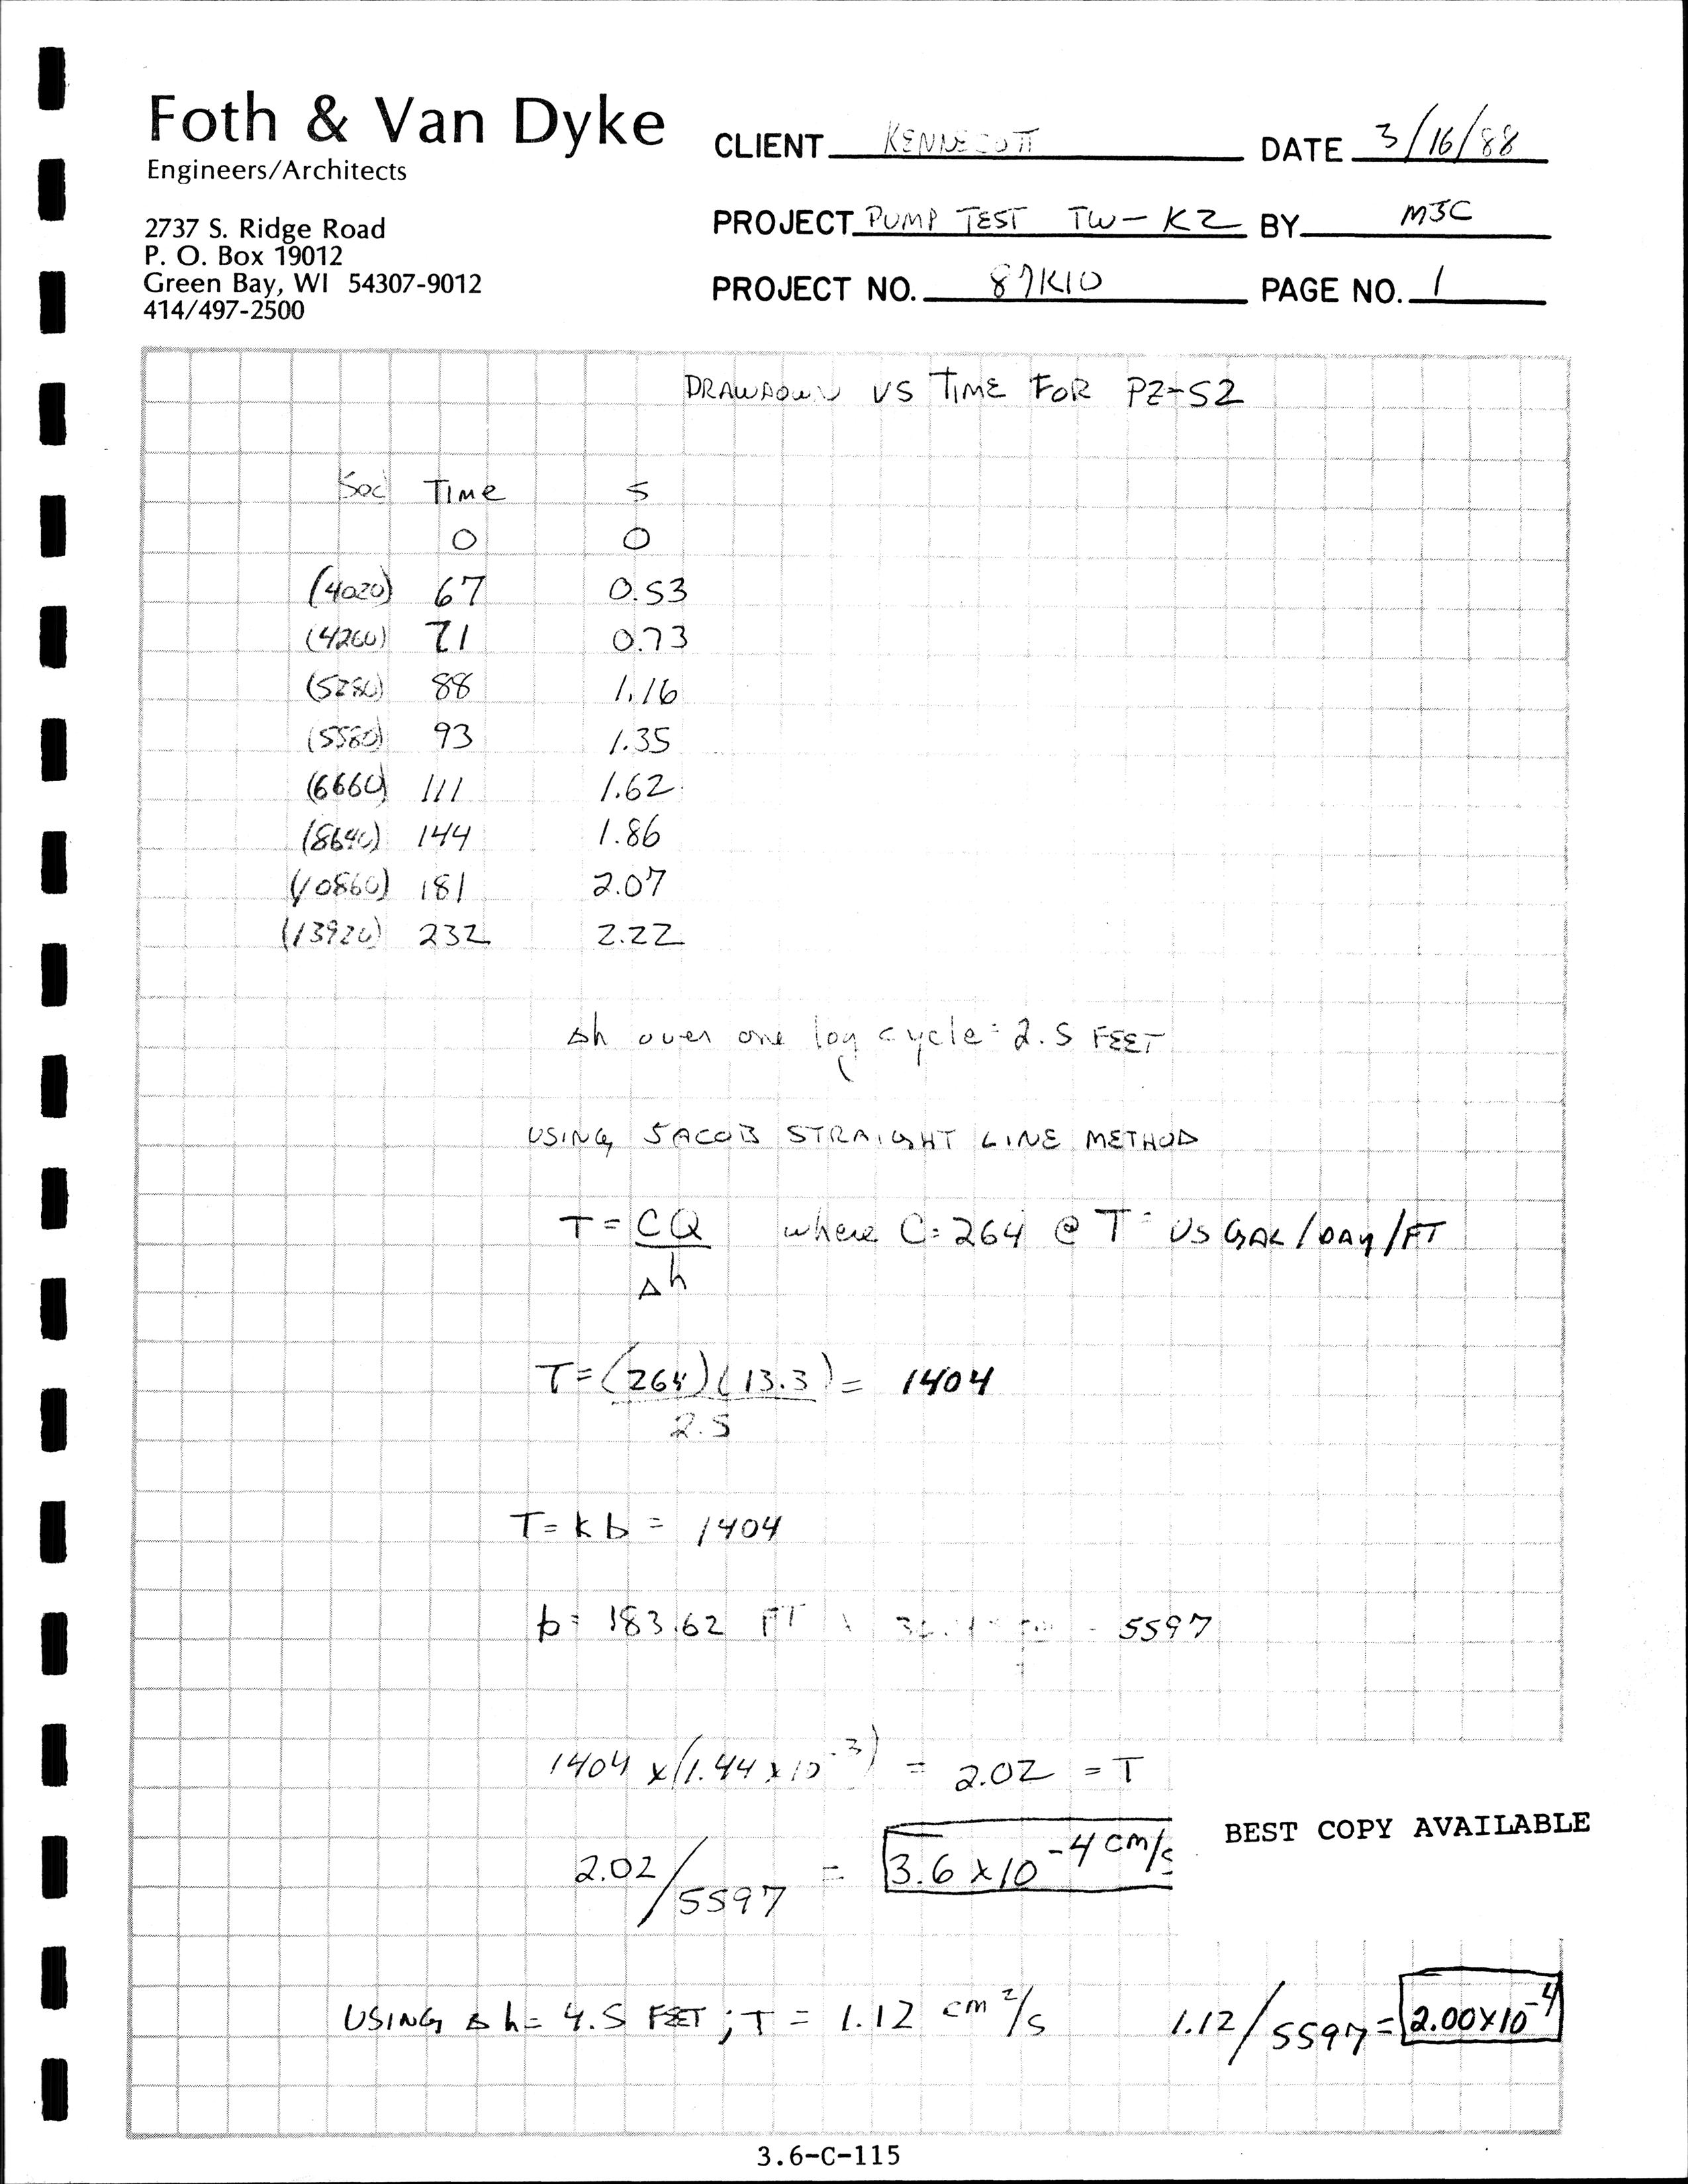 Foth & Van Dyke
Engineers/Architects
2737 S. Ridge Road
P. O. Box 19012
Green Bay, WI 54307-9012
414/497-2500
CLIENT KENNECOTT DATE 3/16/88
PROJECT PUMP TEST TW-K2 BY MJC
PROJECT NO. 87K10 PAGE NO. 1
DRAWDOWN VS TIME FOR PZ-S2
Time s
0 0
(4020) 67 0.53
(4260) 71 0.73
(5280) 88 1.16
(5580) 93 1.35
(6660) 111 1.62
(8640) 144 1.86
(10860) 181 2.07
(13920) 232 2.22
Δh over one log cycle = 2.5 FEET
USING JACOB STRAIGHT LINE METHOD
T = CQ where C = 264 @ T = US GAL/DAY/FT
Δh
T = (264)(13.3) = 1404
2.5
T = kb = 1404
b = 183.62 FT 5597
1404 x (1.44 x 10^-3) = 2.02 = T
BEST COPY AVAILABLE
2.02/5597 = 3.6 x 10^-4 cm/s
USING Δh = 4.5 FEET; T = 1.12 cm²/s 1.12/5597 = 2.00x10^-4
3.6-C-115